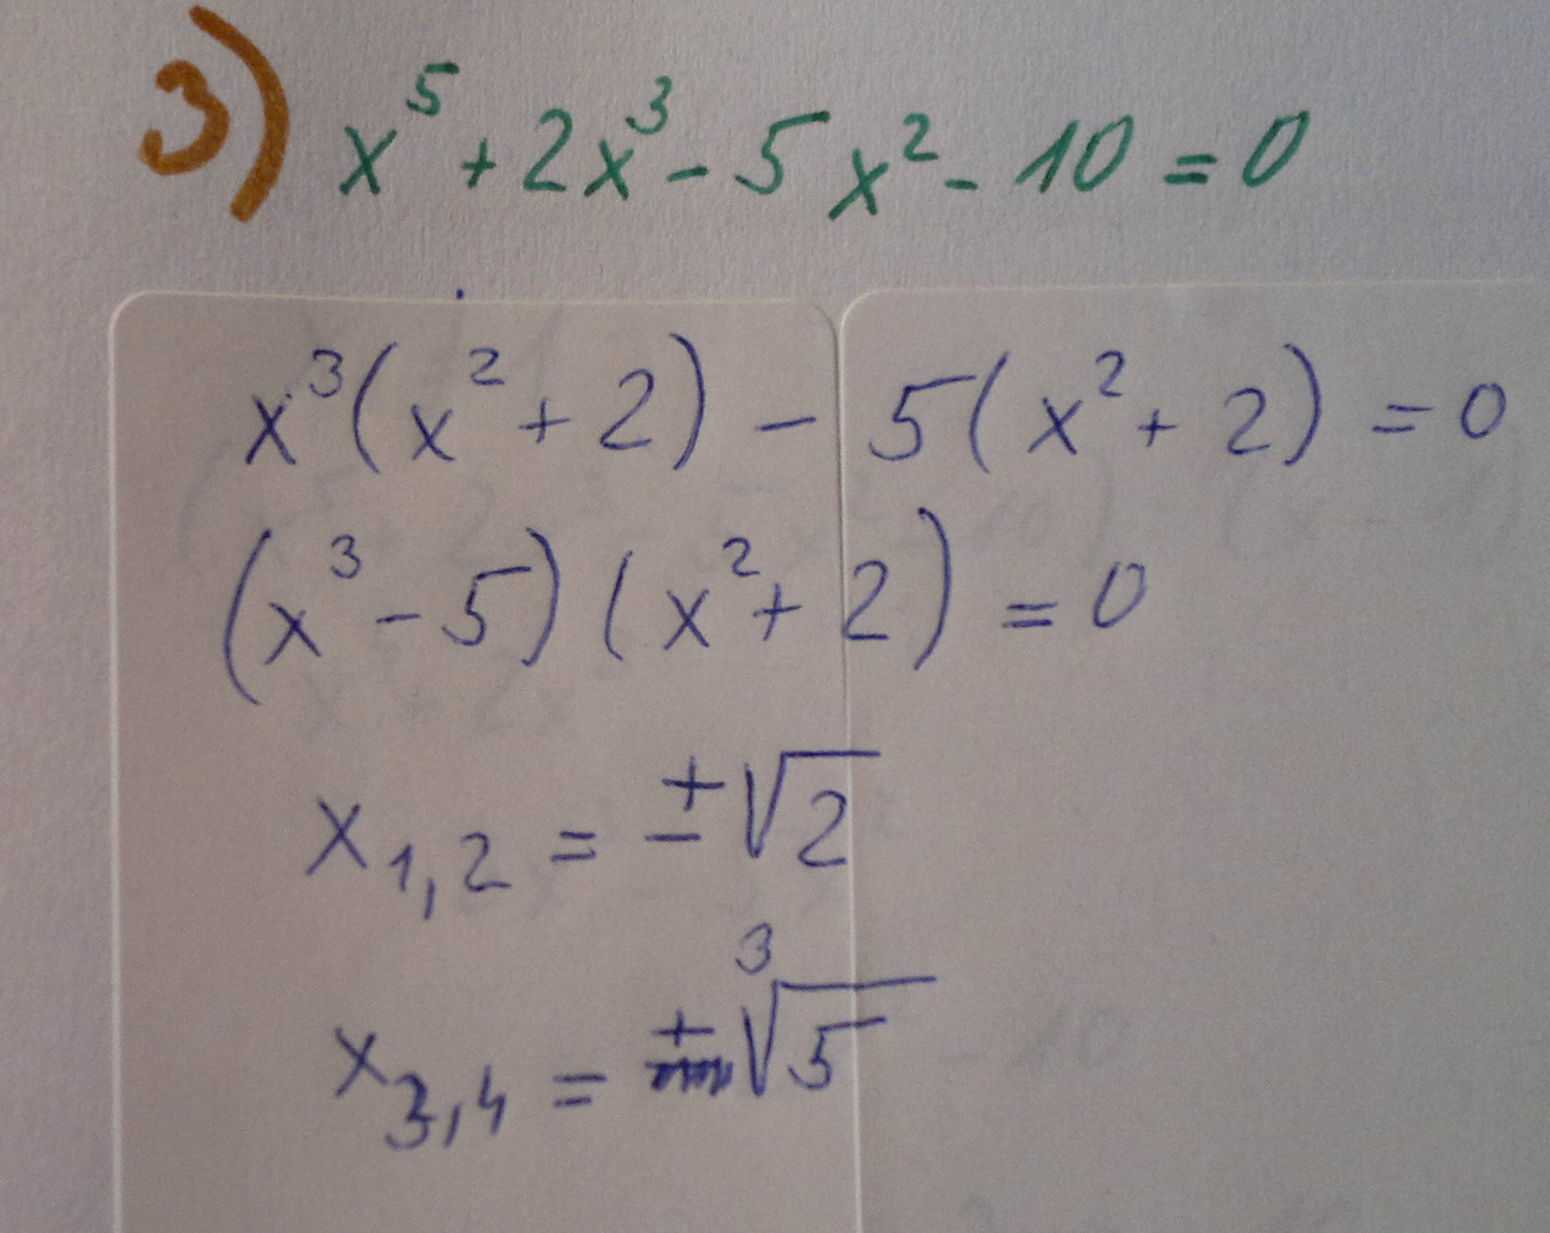 3) x⁵ + 2x³ - 5x² - 10 = 0
x³(x² + 2) - 5(x² + 2) = 0
(x³ - 5)(x² + 2) = 0
x₁,₂ = ±√2
x₃,₄ = +∛5